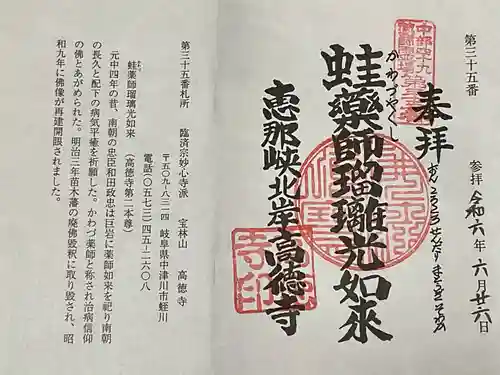 第三十五番
参拝 令和六年六月廿六日
奉拝
おんころころせんだり まとうぎそわか
かわづやくし
蛙藥師瑠璃光如来
恵那峡北岸高徳寺
第三十五番札所 臨済宗妙心寺派 宝林山 高徳寺
〒五〇九-八三二四 岐阜県中津川市蛭川
電話(〇五七三)四五-二六〇八
蛙薬師瑠璃光如来(高徳寺第二本尊)
元中四年の昔、南朝の忠臣和田政忠は巨岩に薬師如来を祀り南朝
の長久と配下の病気平癒を祈願した。かわづ薬師と称され治病信仰
の佛とあがめられた。明治三年苗木藩の廃佛毀釈に取り毀され、昭
和九年に佛像が再建開眼されました。